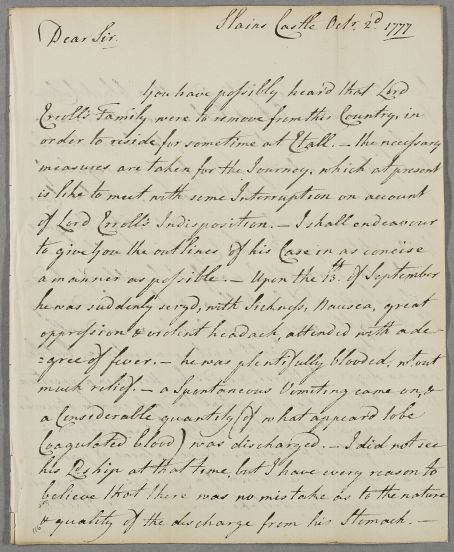 Slains Castle Octr. 2d 1777
Dear Sir.
You have possibly heard that Lord
Erroll's Family were to remove from this Country, in
order to reside for sometime at Etall. — the necessary
measures are taken for the Journey, which at present
is like to meet with some Interruption on account
of Lord Erroll's Indisposition. — I shall endeavour
to give you the outlines of his Case in as concise
a manner as possible. — Upon the 13th. of September
he was suddenly seized, with Sickness, Nausea, great
oppression & violent headach, attended with a de-
=gree of fever. — he was plentifully blooded, wtout
much relief. — a Spontaneous Vomiting came on, &
a Considerable quantity (of what appeard to be
Coagulated blood) was discharged. — I did not see
his Lship at that time, but I have every reason to
believe that there was no mistake as to the nature
& quality of the discharge from his Stomach. —